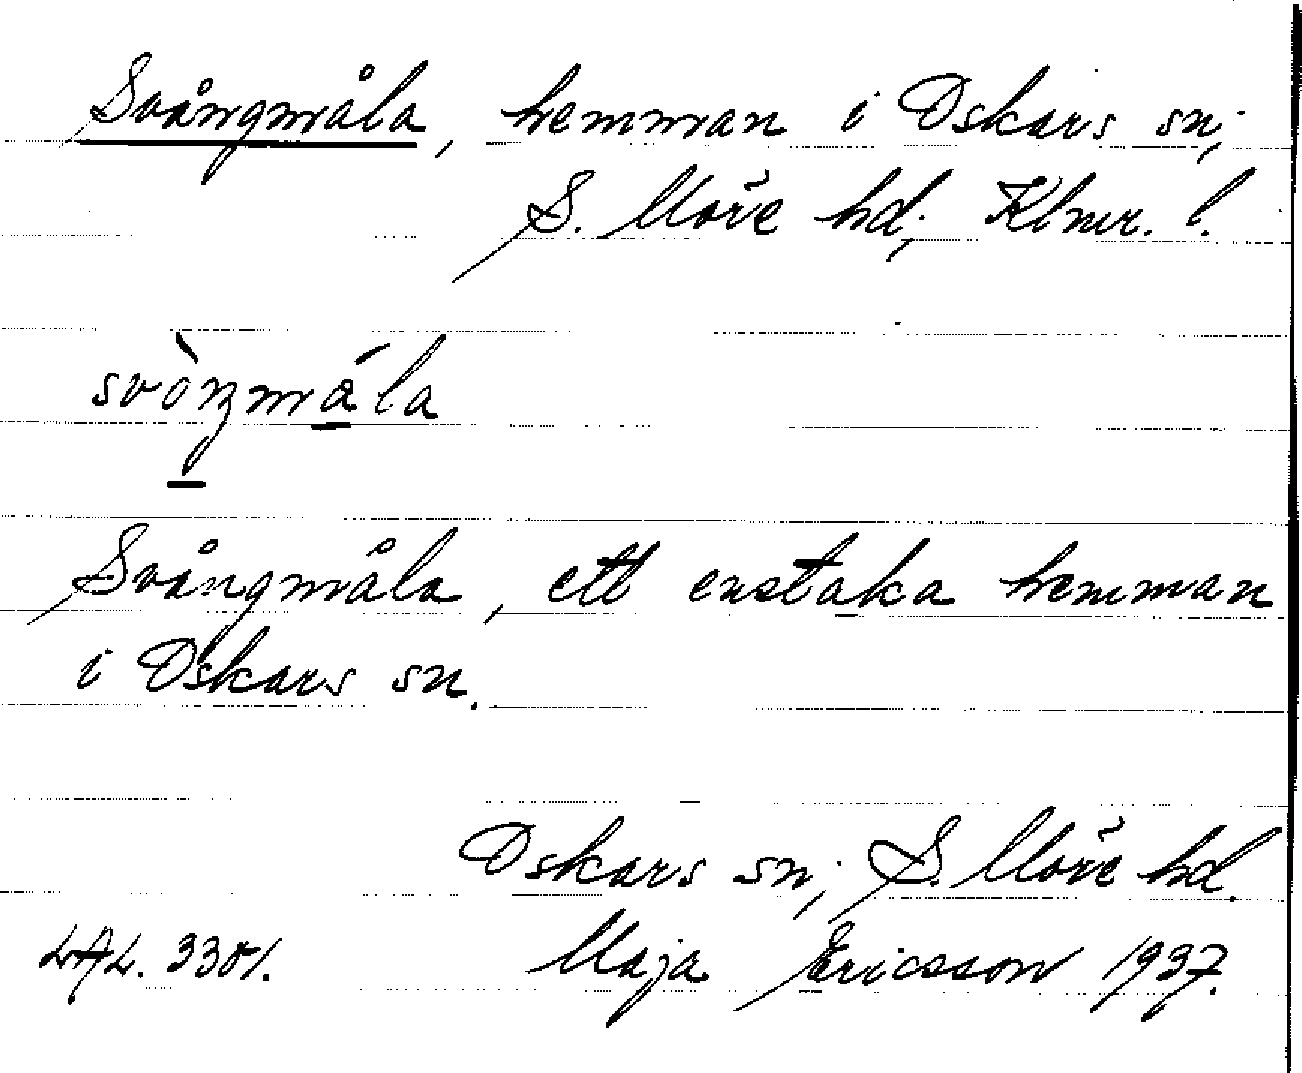 Svångmåla, hemman i Oskars sn;
S. Möre hd, Klmr. l.
svòŋmåla
Svångmåla, ett enstaka hemman
i Oskars sn.
Oskars sn; S. Möre hd.
LAL. 3301. Maja Ericsson 1937.